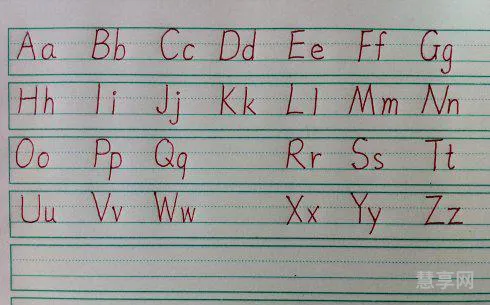 Aa Bb Cc Dd Ee Ff Gg
Hh Ii Jj Kk Ll Mm Nn
Oo Pp Qq Rr Ss Tt
Uu Vv Ww Xx Yy Zz
慧享网